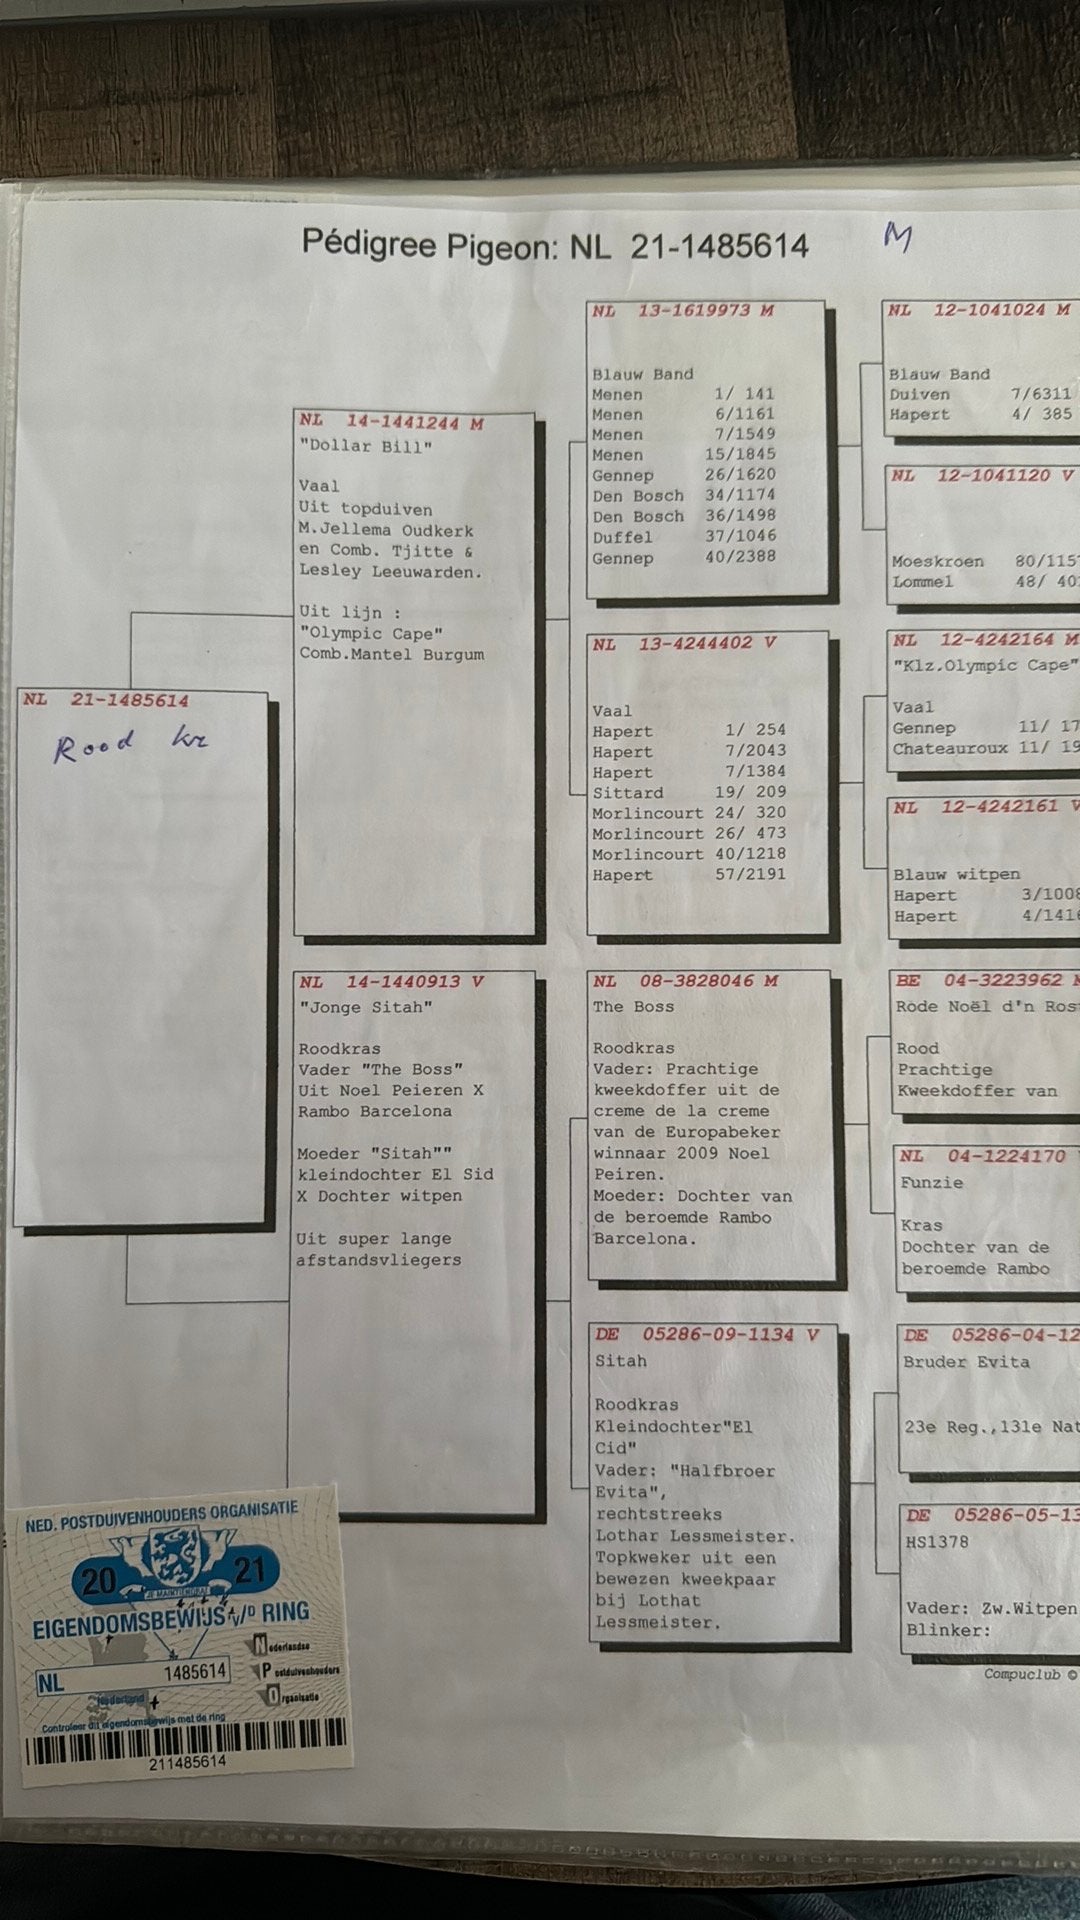 Pédigree Pigeon: NL 21-1485614 M
NL 21-1485614
Rood kr
NL 14-1441244 M
"Dollar Bill"
Vaal
Uit topduiven
M.Jellema Oudkerk
en Comb. Tjitte &
Lesley Leeuwarden.
Uit lijn :
"Olympic Cape"
Comb.Mantel Burgum
NL 14-1440913 V
"Jonge Sitah"
Roodkras
Vader "The Boss"
Uit Noel Peieren X
Rambo Barcelona
Moeder "Sitah""
kleindochter El Sid
X Dochter witpen
Uit super lange
afstandsvliegers
NL 13-1619973 M
Blauw Band
Menen 1/ 141
Menen 6/1161
Menen 7/1549
Menen 15/1845
Gennep 26/1620
Den Bosch 34/1174
Den Bosch 36/1498
Duffel 37/1046
Gennep 40/2388
NL 13-4244402 V
Vaal
Hapert 1/ 254
Hapert 7/2043
Hapert 7/1384
Sittard 19/ 209
Morlincourt 24/ 320
Morlincourt 26/ 473
Morlincourt 40/1218
Hapert 57/2191
NL 08-3828046 M
The Boss
Roodkras
Vader: Prachtige
kweekdoffer uit de
creme de la creme
van de Europabeker
winnaar 2009 Noel
Peiren.
Moeder: Dochter van
de beroemde Rambo
Barcelona.
DE 05286-09-1134 V
Sitah
Roodkras
Kleindochter"El
Cid"
Vader: "Halfbroer
Evita",
rechtstreeks
Lothar Lessmeister.
Topkweker uit een
bewezen kweekpaar
bij Lothat
Lessmeister.
NL 12-1041024 M
Blauw Band
Duiven 7/6311
Hapert 4/ 385
NL 12-1041120 V
Moeskroen 80/115
Lommel 48/ 40
NL 12-4242164 M
"Klz.Olympic Cape"
Vaal
Gennep 11/ 17
Chateauroux 11/ 19
NL 12-4242161 V
Blauw witpen
Hapert 3/1008
Hapert 4/1416
BE 04-3223962 M
Rode Noël d'n Ros
Rood
Prachtige
Kweekdoffer van
NL 04-1224170
Funzie
Kras
Dochter van de
beroemde Rambo
DE 05286-04-12
Bruder Evita
23e Reg.,131e Nat
DE 05286-05-13
HS1378
Vader: Zw.Witpen
Blinker:
Compuclub ©
NED. POSTDUIVENHOUDERS ORGANISATIE
20 21
EIGENDOMSBEWIJS v/D RING
NL 1485614
Nederland
Nederlandse
Postduivenhouders
Organisatie
Controleer dit eigendomsbewijs met de ring
211485614